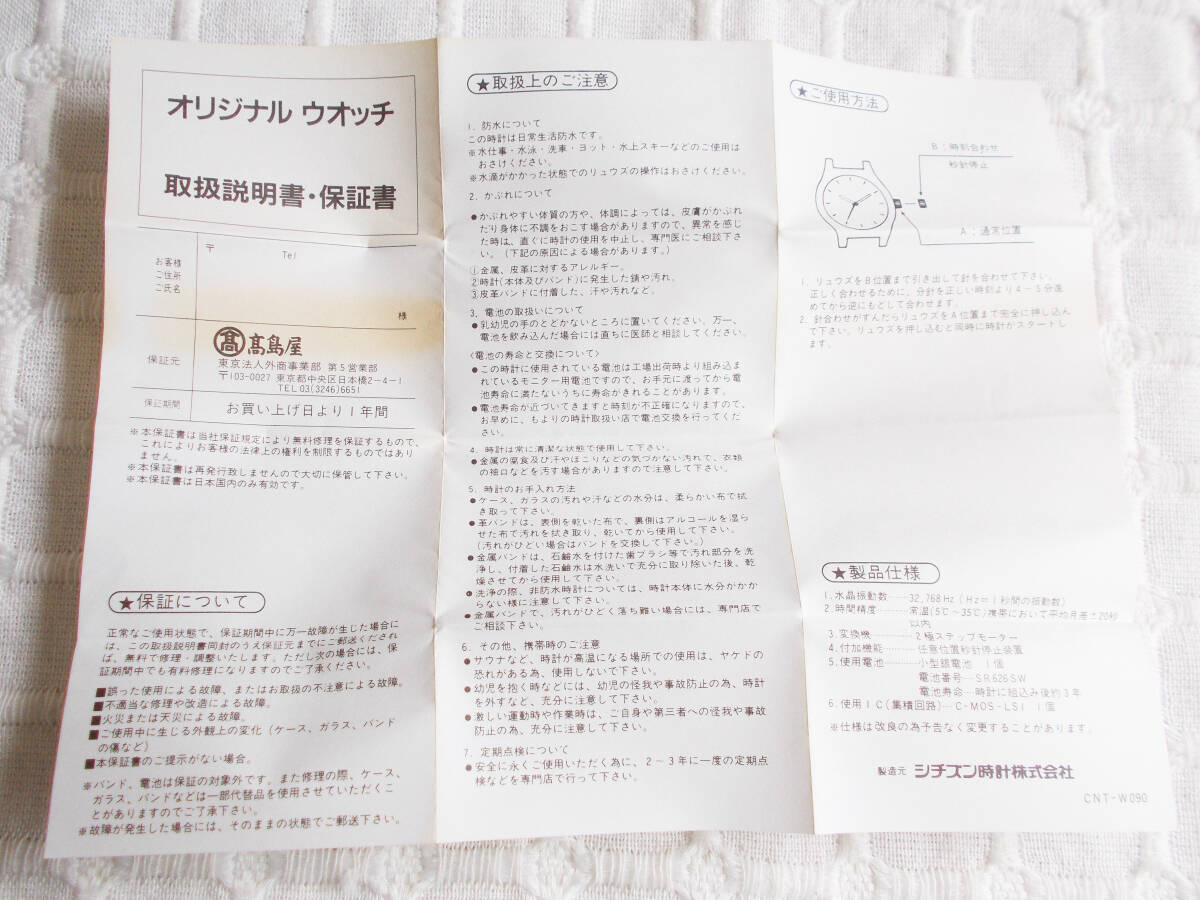 オリジナル ウオッチ
取扱説明書・保証書
お客様
ご住所
ご氏名
〒
Tel
様
保証元
髙 髙島屋
東京法人外商事業部 第5営業部
〒103-0027 東京都中央区日本橋2-4-1
TEL 03(3246)6651
保証期間
お買い上げ日より1年間
※本保証書は当社保証規定により無料修理を保証するもので、
これによりお客様の法律上の権利を制限するものではあり
ません。
※本保証書は再発行致しませんので大切に保管して下さい。
※本保証書は日本国内のみ有効です。
★保証について
正常なご使用状態で、保証期間中に万一故障が生じた場合に
は、この取扱説明書同封のうえ保証元までにご郵送くだされ
ば、無料で修理・調整いたします。ただし次の場合には、保
証期間中でも有料修理になりますのでご了承ください。
■誤った使用による故障、またはお取扱の不注意による故障。
■不適当な修理や改造による故障。
■火災または天災による故障。
■ご使用中に生じる外観上の変化(ケース、ガラス、バンド
の傷など)
■本保証書のご提示がない場合。
※バンド、電池は保証の対象外です。また修理の際、ケース、
ガラス、バンドなどは一部代替品を使用させていただくこ
とがありますのでご了承下さい。
※故障が発生した場合には、そのままの状態でご郵送下さい。
★取扱上のご注意
1. 防水について
この時計は日常生活防水です。
※水仕事・水泳・洗車・ヨット・水上スキーなどのご使用は
おさけください。
※水滴がかかった状態でのリュウズの操作はおさけください。
2. かぶれについて
●かぶれやすい体質の方や、体調によっては、皮膚がかぶれ
たり身体に不調をおこす場合がありますので、異常を感じ
た時は、直ぐに時計の使用を中止し、専門医にご相談下さ
い。(下記の原因による場合があります。)
①金属、皮革に対するアレルギー。
②時計(本体及びバンド)に発生した錆や汚れ。
③皮革バンドに付着した、汗や汚れなど。
3. 電池の取扱いについて
●乳幼児の手のとどかないところに置いてください。万一、
電池を飲み込んだ場合には直ちに医師と相談してください。
〈電池の寿命と交換について〉
●この時計に使用されている電池は工場出荷時より組み込ま
れているモニター用電池ですので、お手元に渡ってから電
池寿命に満たないうちに寿命がきれることがあります。
●電池寿命が近づいてきますと時刻が不正確になりますので、
お早めに、もよりの時計取扱い店で電池交換を行ってくだ
さい。
4. 時計は常に清潔な状態で使用して下さい。
●金属の腐食及び汗やほこりなどの気づかない汚れで、衣類
の袖口などを汚す場合がありますので注意して下さい。
5. 時計のお手入れ方法
●ケース、ガラスの汚れや汗などの水分は、柔らかい布で拭
き取って下さい。
●革バンドは、表側を乾いた布で、裏側はアルコールを湿ら
せた布で汚れを拭き取り、乾いてから使用して下さい。
(汚れがひどい場合はバンドを交換して下さい。)
●金属バンドは、石鹼水を付けた歯ブラシ等で汚れ部分を洗
浄し、付着した石鹼水は水洗いで充分に取り除いた後、乾
燥させてから使用して下さい。
●洗浄の際、非防水時計については、時計本体に水分がかか
らない様に注意して下さい。
●金属バンドで、汚れがひどく落ち難い場合には、専門店で
ご相談下さい。
6. その他、携帯時のご注意
●サウナなど、時計が高温になる場所での使用は、ヤケドの
恐れがある為、使用しないで下さい。
●幼児を抱く時などには、幼児の怪我や事故防止の為、時計
を外すなど、充分に注意して下さい。
●激しい運動時や作業時は、ご自身や第三者への怪我や事故
防止の為、充分に注意して下さい。
7. 定期点検について
●安全に永くご使用いただく為に、2～3年に一度の定期点
検などを専門店で行って下さい。
★ご使用方法
B：時刻合わせ
秒針停止
A：通常位置
1. リュウズをB位置まで引き出して針を合わせて下さい。
正しく合わせるために、分針を正しい時刻より4－5分進
めてから逆にもどして合わせます。
2. 針合わせがすんだらリュウズをA位置まで完全に押し込ん
で下さい。リュウズを押し込むと同時に時計がスタートし
ます。
★製品仕様
1. 水晶振動数……32,768Hz(Hz=1秒間の振動数)
2. 時間精度………常温(5℃～35℃)携帯において平均月差±20秒
以内
3. 変換機…………2極ステップモーター
4. 付加機能………任意位置秒針停止装置
5. 使用電池………小型銀電池 1個
電池番号…SR626SW
電池寿命…時計に組込み後約3年
6. 使用IC(集積回路)…C-MOS-LSI 1個
※仕様は改良の為予告なく変更することがあります。
製造元 シチズン時計株式会社
CNT-W090